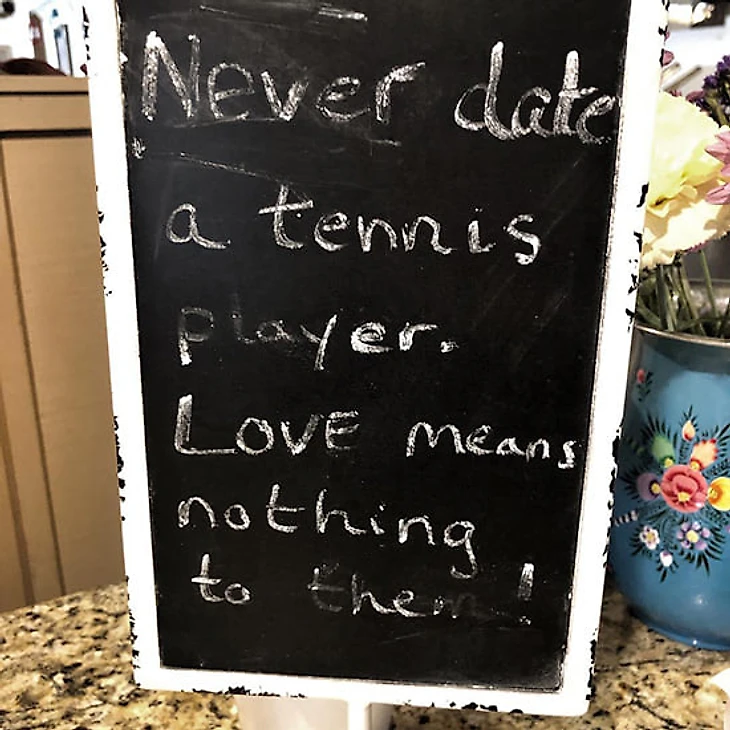 Never date
a tennis
player.
LOVE means
nothing
to them!